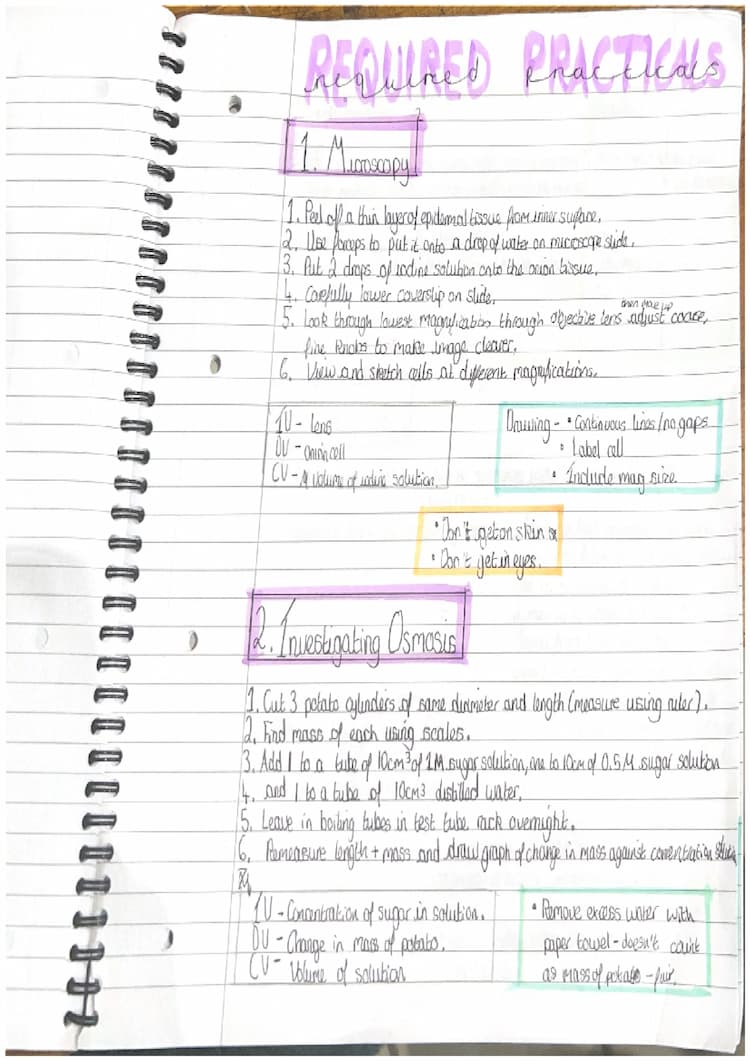 REQUIRED PRACTICALS
required practicals
1. Microscopy
1. Peel off a thin layer of epidermal tissue from inner surface.
2. Use forceps to put it onto a drop of water on microscope slide.
3. Put 2 drops of iodine solution onto the onion tissue.
4. Carefully lower coverslip on slide.
then move up
5. Look through lowest magnification through objective lens adjust coarse,
fine knobs to make image clearer.
6. View and sketch cells at different magnifications.
IV - lens
DV - onion cell
CV - volume of iodine solution.
Drawing - • Continuous lines/no gaps
• Label cell
• Include mag size.
• Don't get on skin
• Don't get in eyes.
2. Investigating Osmosis
1. Cut 3 potato cylinders of same diameter and length (measure using ruler).
2. Find mass of each using scales.
3. Add 1 to a tube of 10cm³ of 1M sugar solution, one to 10cm of 0.5M sugar solution
4. and 1 to a tube of 10cm3 distilled water.
5. Leave in boiling tubes in test tube rack overnight.
6. Remeasure length + mass and draw graph of change in mass against concentration
IV - Concentration of sugar in solution.
DV - Change in mass of potato.
CV - Volume of solution
• Remove excess water with
paper towel - doesn't count
as mass of potato - fair.